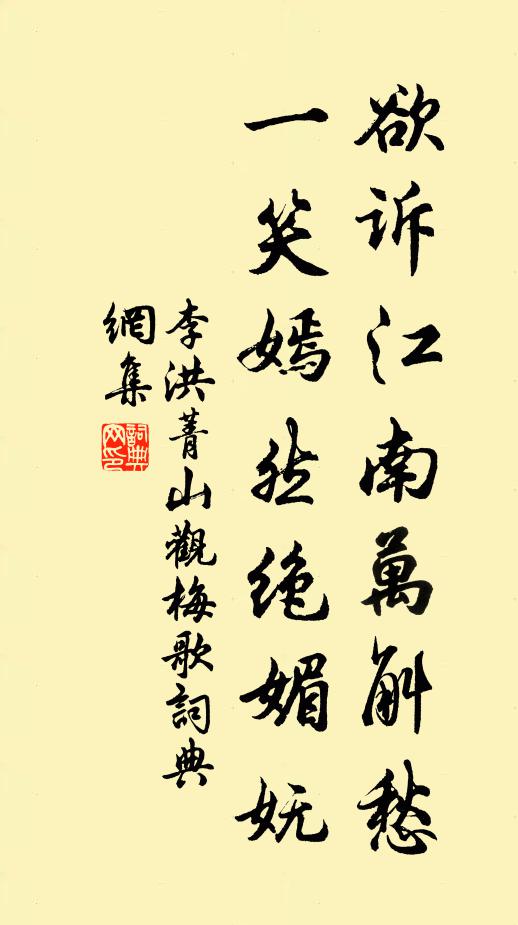 欲诉江南萬斛愁
一笑嫣然绝媚妩
李洪菁山觀梅歌詞典
網集
詞典
网印